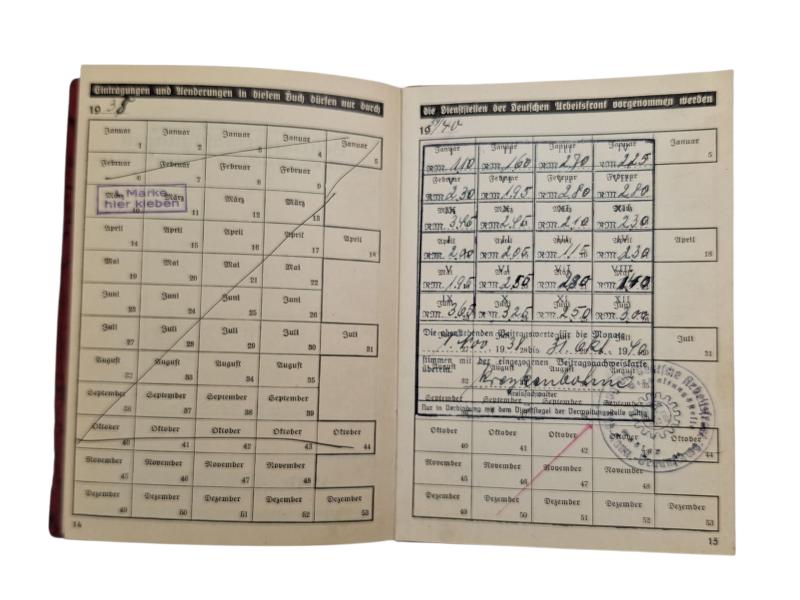 Eintragungen und Aenderungen in diesem Buch dürfen nur durch
1938
Januar 1 Januar 2 Januar 3 Januar 4 Januar 5
Februar 6 Februar 7 Februar 8 Februar 9
1. Marke
hier kleben
März 10 März 11 März 12 März 13
April 14 April 15 April 16 April 17 April 18
Mai 19 Mai 20 Mai 21 Mai 22
Juni 23 Juni 24 Juni 25 Juni 26
Juli 27 Juli 28 Juli 29 Juli 30 Juli 31
August 32 August 33 August 34 August 35
September 36 September 37 September 38 September 39
Oktober 40 Oktober 41 Oktober 42 Oktober 43 Oktober 44
November 45 November 46 November 47 November 48
Dezember 49 Dezember 50 Dezember 51 Dezember 52 Dezember 53
14
die Dienststellen der Deutschen Arbeitsfront vorgenommen werden
1939/40
Januar Januar Januar Januar Januar 5
RM. 1.80 RM. 1.60 RM. 2.70 RM. 2.25
Februar Februar Februar Februar
RM. 2.30 RM. 1.95 RM. 2.80 RM. 2.80
RM. 3.45 RM. 2.45 RM. 2.10 RM. 2.30
April April April April April 18
RM. 2.00 RM. 2.05 RM. 1.15 RM. 2.30
V VI VII VIII
RM. 1.95 RM. 2.50 RM. 2.80 RM. 1.40
IX X XI XII
RM. 3.65 RM. 3.20 RM. 2.50 RM. 3.00
Juli 31
Die obenstehenden Beitragswerte für die Monate
bis 31. Okt. 1940
stimmen mit der eingezogenen Beitragsnachweiskarte
überein.
August August August
Kreiswalter
September September September
Nur in Verbindung mit dem Dienstsiegel der Verwaltungsstelle gültig
Deutsche Arbeitsfront
Oktober 40 Oktober 41 Oktober 42 Oktober Oktober 44
November 45 November 46 November 47 November
Dezember 49 Dezember 50 Dezember 51 Dezember 52 Dezember 53
15